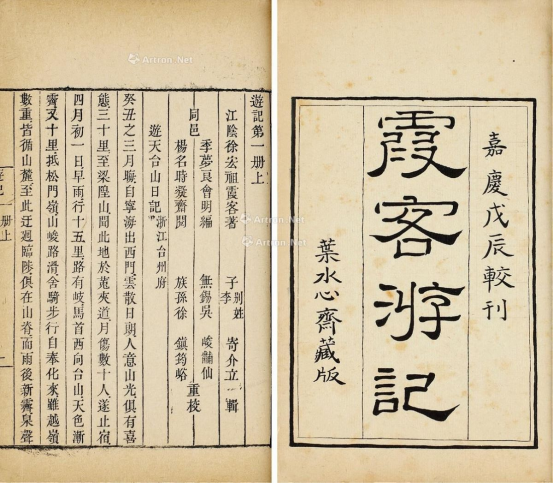 嘉慶戊辰較刊
霞客游記
葉水心齋藏版
遊記第一册上
江陰徐宏祖霞客著
子李寄介立輯
别姓
同邑
季夢良會明編
楊名時凝齋閱
無錫吳峻
族孫徐鎮筠峪
重校
遊天台山日記
浙江台州府
癸丑之三月晦自寧海出西門雲散日朗人意山光俱有喜
態三十里至梁隍山聞此地於菟夾道月傷數十人遂止宿
四月初一日早雨行十五里路有岐馬首西向台山天色漸
霽又十里抵松門嶺山峻路滑舍騎步行自奉化來雖越嶺
數重皆循山麓至此迂迴臨陟俱在山脊而雨後新霽泉聲
Artron.Net
Artron.Net
Artron.Net
Artron.Net